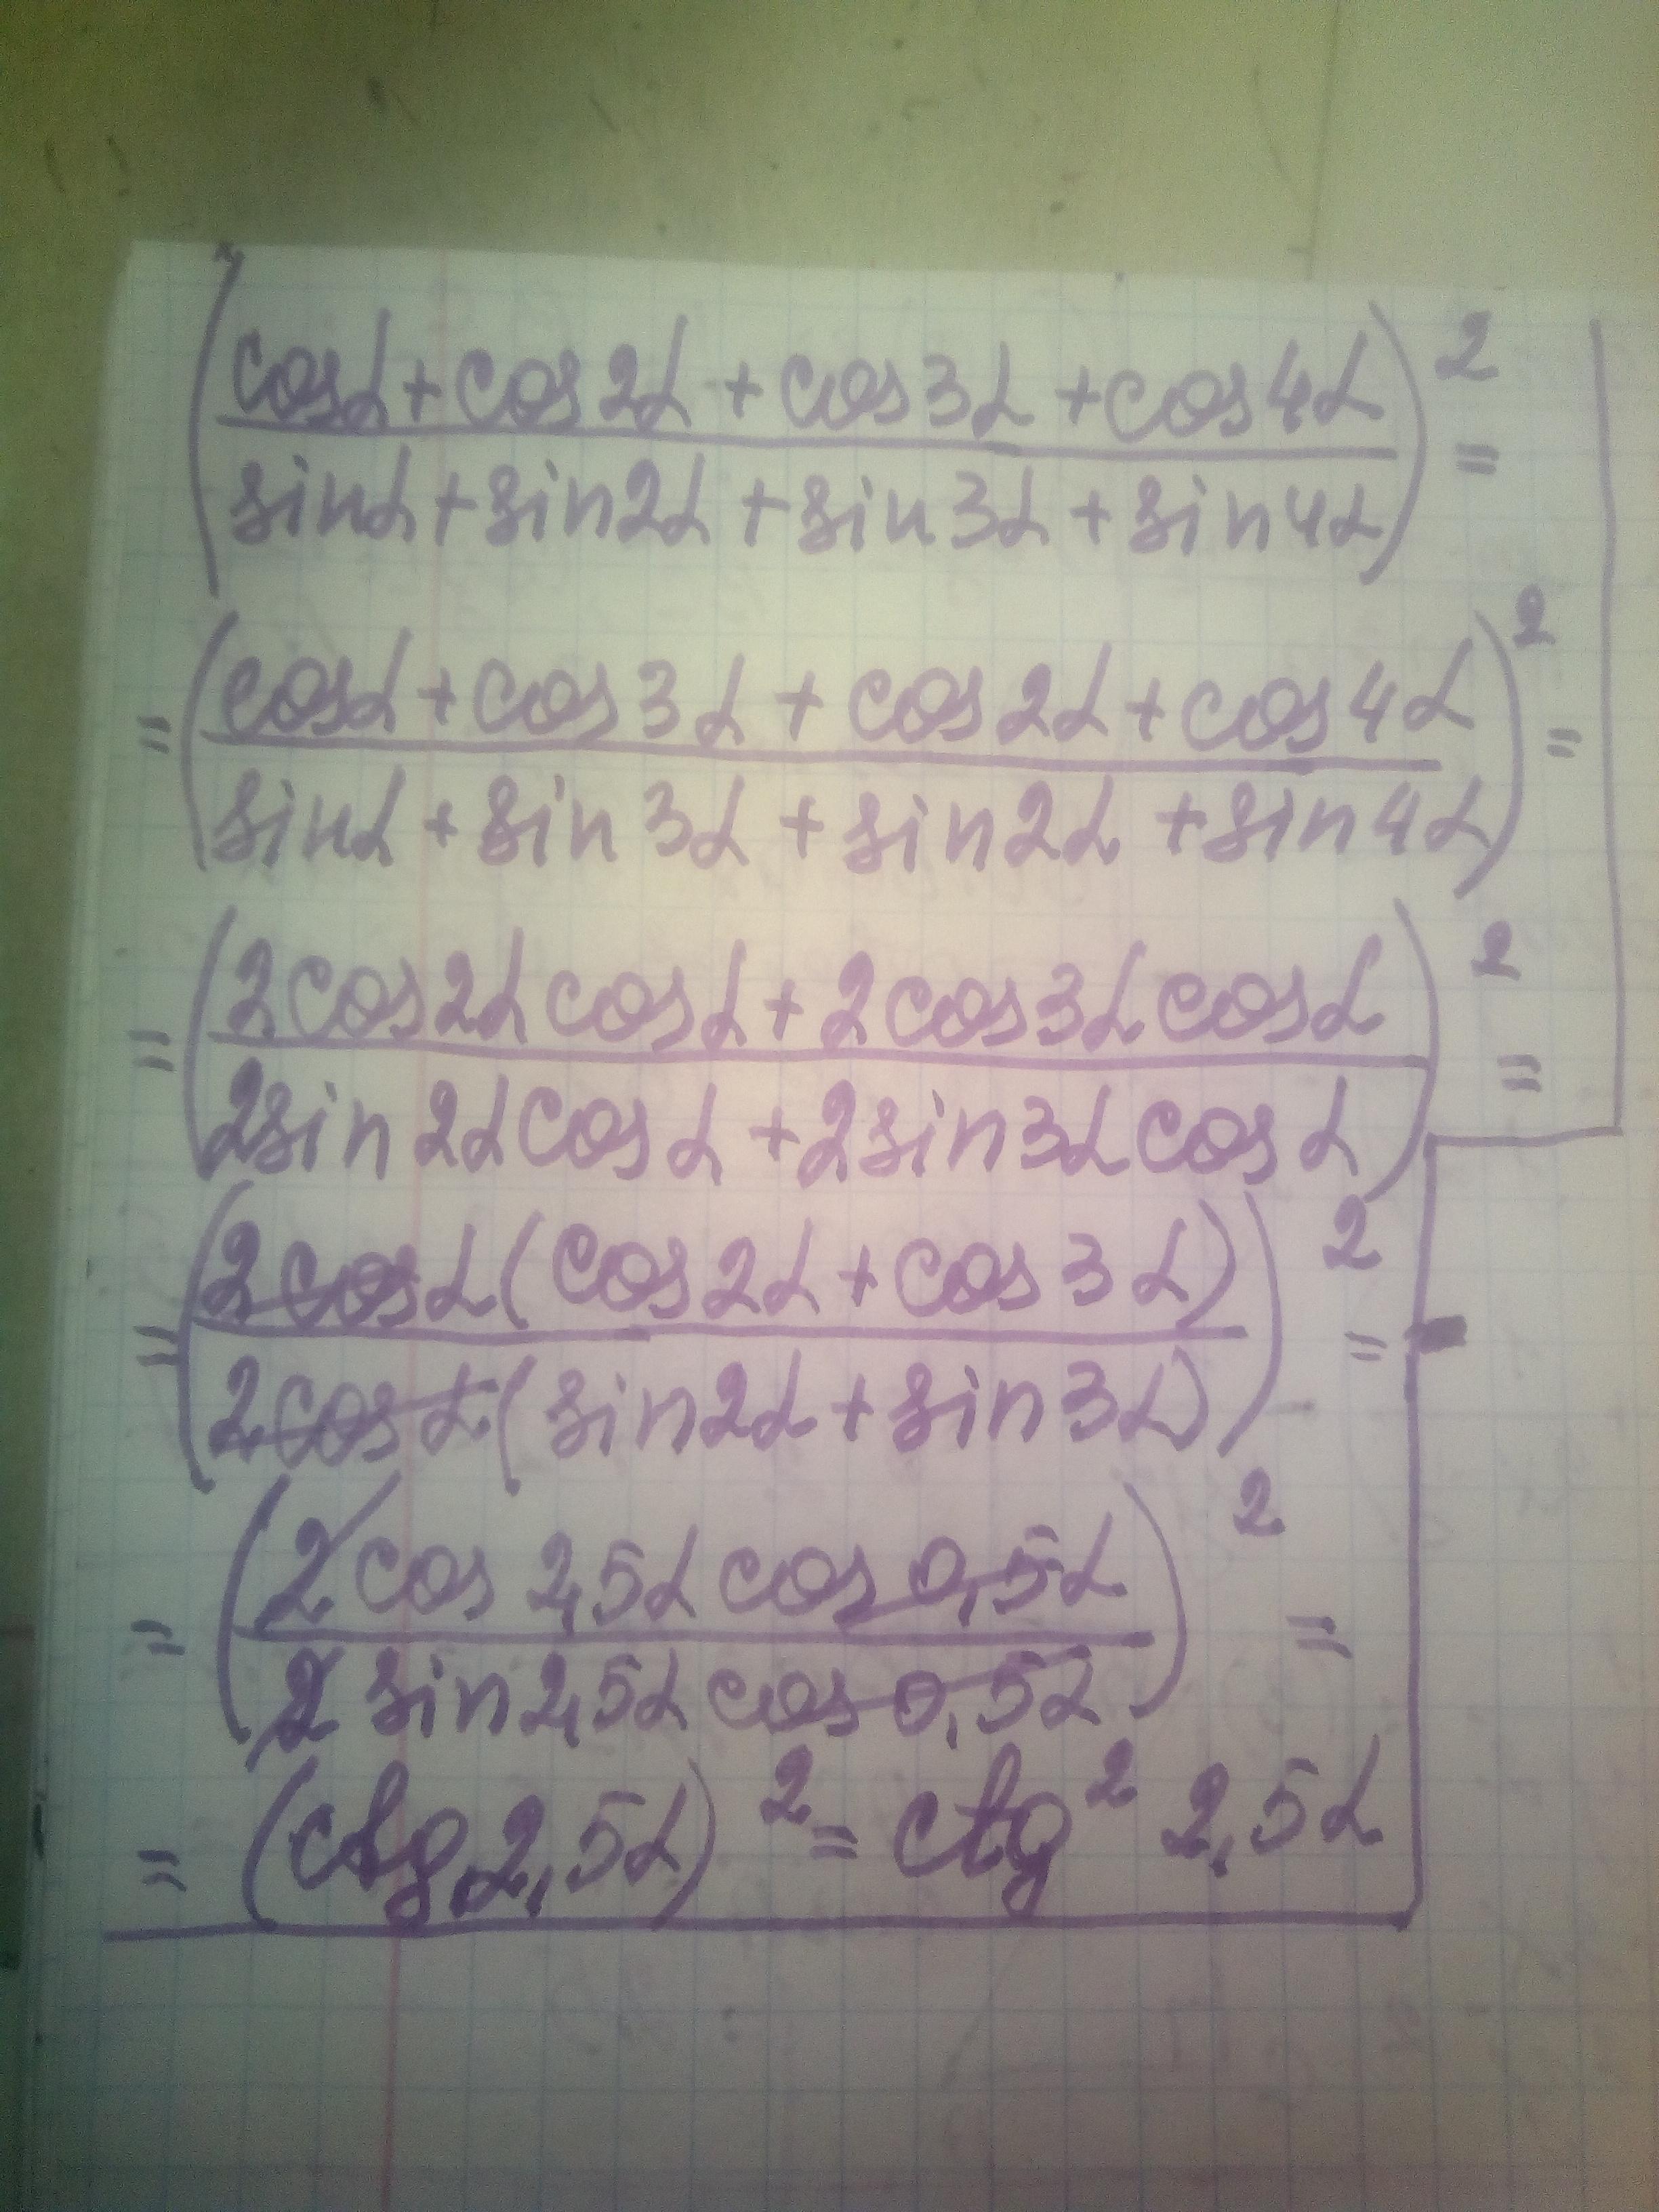 (cosα + cos2α + cos3α + cos4α / sinα + sin2α + sin3α + sin4α)² =
= (cosα + cos3α + cos2α + cos4α / sinα + sin3α + sin2α + sin4α)² =
= (2cos2α cosα + 2cos3α cosα / 2sin2α cosα + 2sin3α cosα)² =
= (2cosα(cos2α + cos3α) / 2cosα(sin2α + sin3α))² =
= (2cos2,5α cos0,5α / 2sin2,5α cos0,5α)² =
= (ctg2,5α)² = ctg² 2,5α